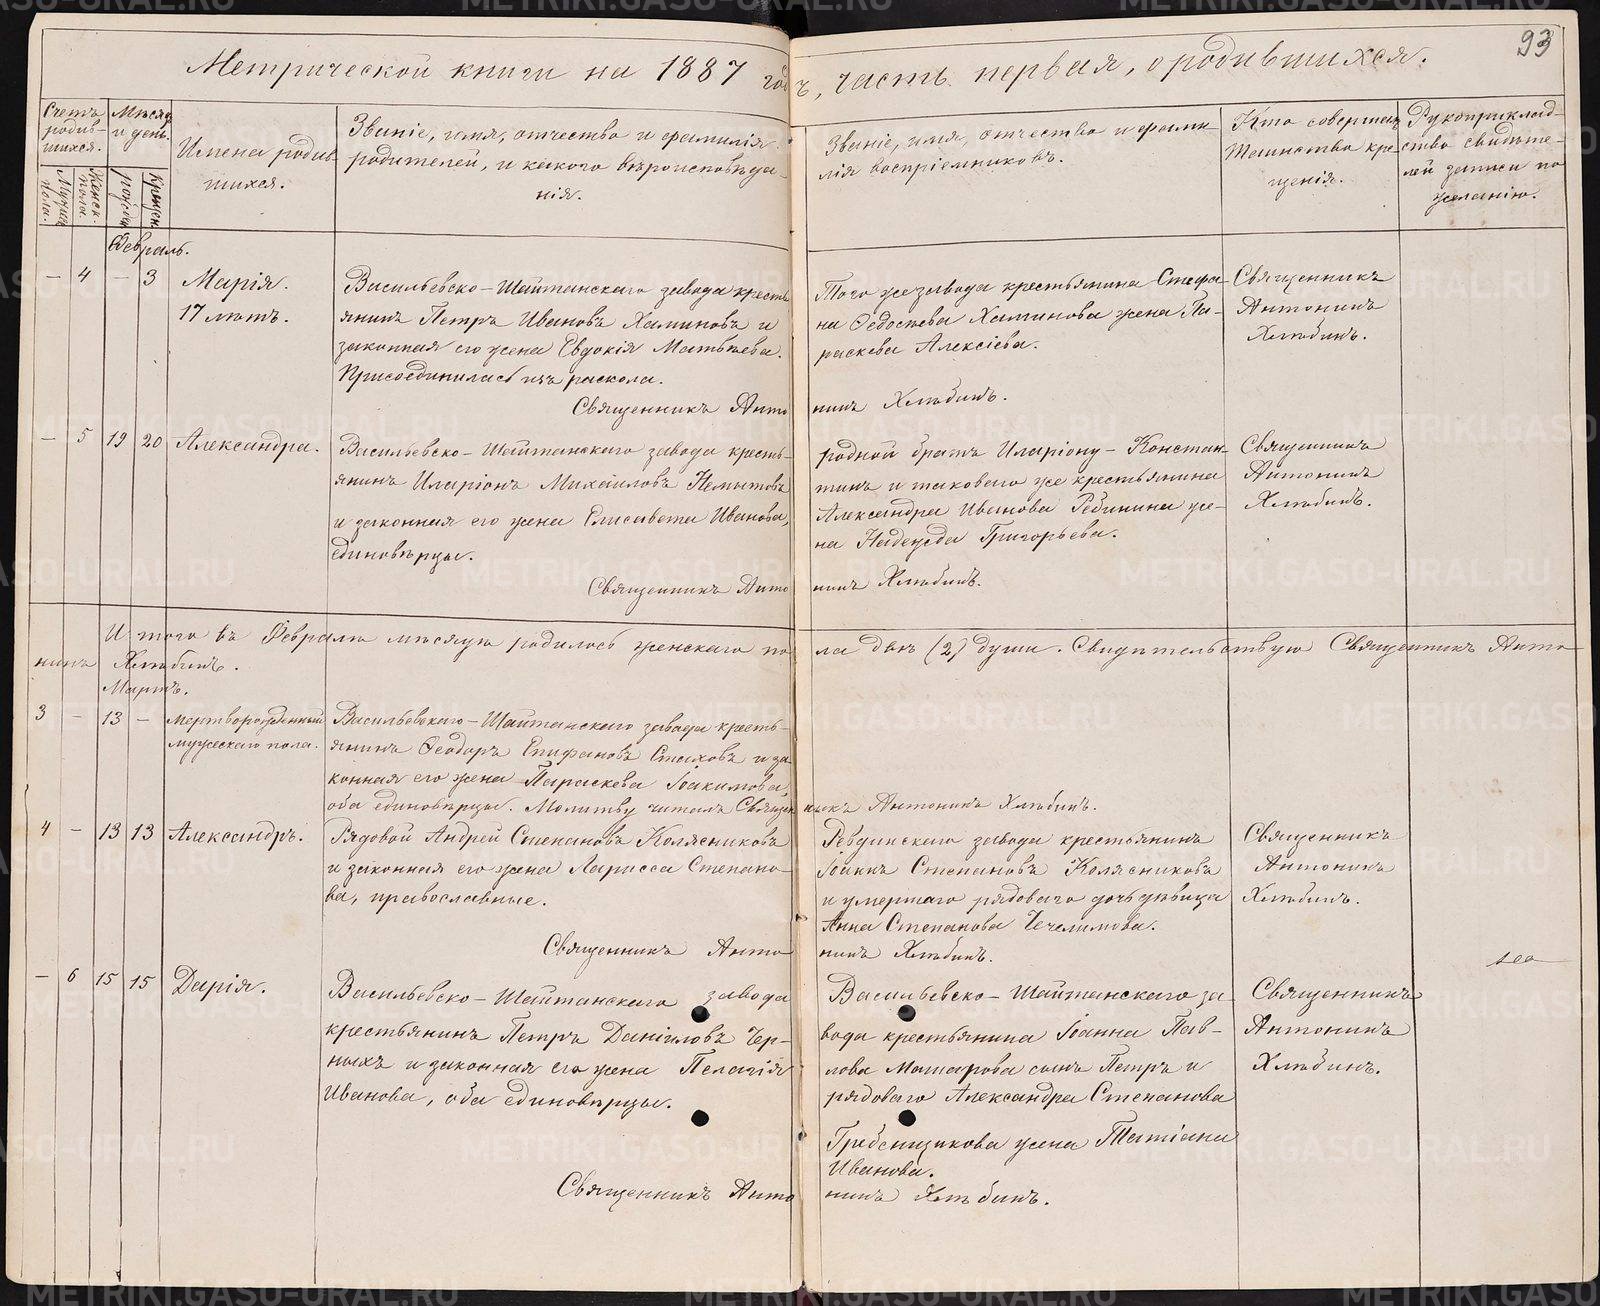 93
Метрической книги на 1887 годъ, часть первая, о родившихся.
Счетъ родив-шихся.
Мужеск. пола.
Женск. пола.
Мѣсяцъ и день.
рожден.
крещен.
Имена родив-
шихся.
Званіе, имя, отчество и фамилія
родителей, и какого вѣроисповѣда-
нія.
Званіе, имя, отчество и фами-
лія воспріемниковъ.
Кто совершалъ
таинство кре-
щенія.
Рукоприклад-
ство свидѣте-
лей записи по
желанію.
Февраль.
— 4 — 3 Марія.
17 лѣтъ.
Васильевско-Шайтанскаго завода кресть
янинъ Петръ Ивановъ Халиновъ и
законная его жена Евдокія Матвѣева.
Присоединилась изъ раскола.
Того же завода крестьянина Стефа-
на Федосѣева Халинова жена Па-
раскева Алексіева.
Священникъ
Антонинъ
Хлѣбинъ.
Священникъ Антонинъ Хлѣбинъ.
— 5 19 20 Александра.
Васильевско-Шайтанскаго завода кресть-
янинъ Иларіонъ Михаиловъ Немытовъ
и законная его жена Елисавета Иванова,
единовѣрцы.
родной братъ Иларіону - Констан-
тинъ и таковаго же крестьянина
Александра Иванова Рябинина же-
на Надежда Григорьева.
Священникъ
Антонинъ
Хлѣбинъ.
Священникъ Антонинъ Хлѣбинъ.
Итого въ Февралѣ мѣсяцѣ родилось женскаго пола двѣ (2) души. Свидѣтельствую Священникъ Анто
нинъ Хлѣбинъ.
Мартъ.
3 — 13 — Мертворожденный
мужескаго пола.
Васильевскаго-Шайтанскаго завода кресть-
янинъ Феодоръ Епифановъ Стаховъ и за
конная его жена Параскева Іоакимова,
оба единовѣрцы. Молитву читалъ Священникъ Антонинъ Хлѣбинъ.
4 — 13 13 Александръ.
Рядовой Андрей Степановъ Колясниковъ
и законная его жена Ларисса Степано-
ва, православные.
Ревдинскаго завода крестьянинъ
Іоаннъ Степановъ Колясниковъ
и умершаго рядоваго дочь дѣвица
Анна Степанова Чечелимова.
Священникъ
Антонинъ
Хлѣбинъ.
Священникъ Антонинъ Хлѣбинъ.
— 6 15 15 Дарія.
Васильевско-Шайтанскаго завода
крестьянинъ Петръ Даніиловъ Чер-
ныхъ и законная его жена Пелагія
Иванова, оба единовѣрцы.
Васильевско-Шайтанскаго за-
вода крестьянина Іоанна Пав-
лова Макарова сынъ Петръ и
рядоваго Александра Степанова
Гребенщикова жена Татіана
Иванова.
Священникъ
Антонинъ
Хлѣбинъ.
Священникъ Антонинъ Хлѣбинъ.
METRIKI.GASO-URAL.RU